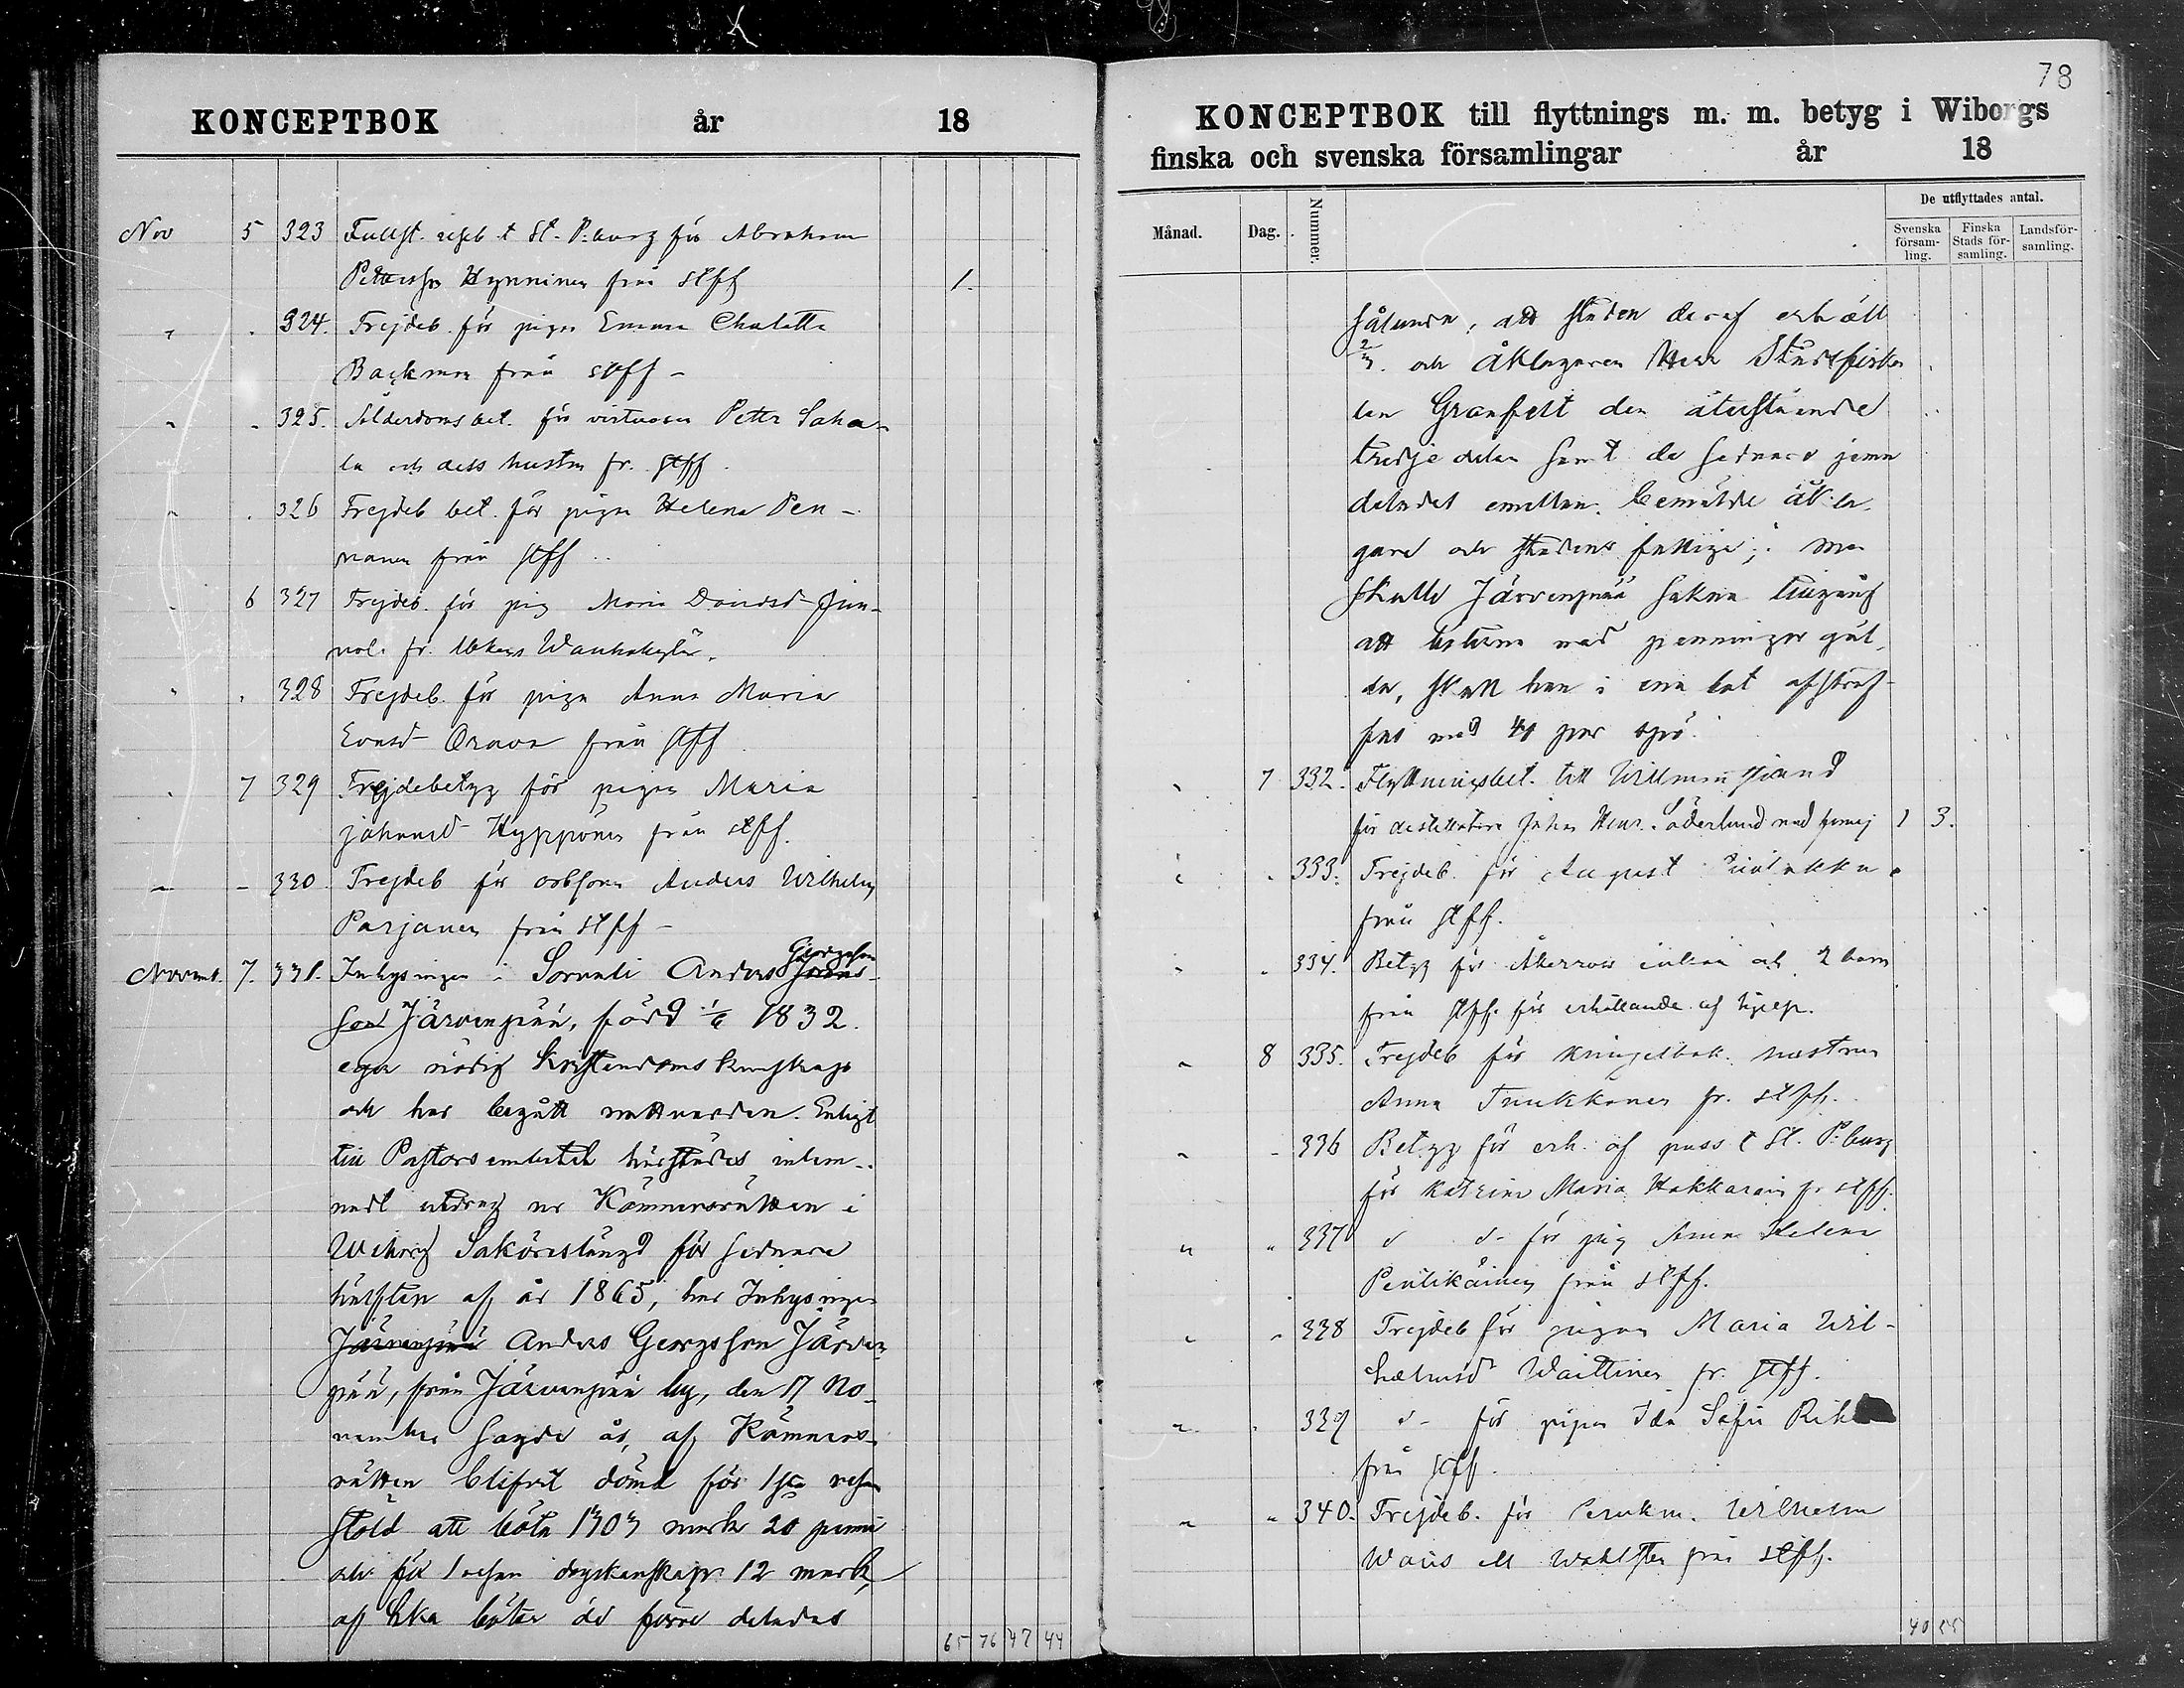 KONCEPTBOK år 18
Nov 5 323 Fullst. reseb t St. P:burg för Abraham
Pettersson Hynninen från stff 1.
" " 324. Frejdeb. för pigan Emma Charlotta
Backman från stff -
" " 325. Ålderdoms bet. för Petter Saha-
la och dess hustru fr. stff
" " 326 Frejdeb bet. för pigan Helena Pen-
nanen från stff
" 6 327 Frejdeb. för pig Maria Davidsd
fr.
" " 328 Frejdeb. för pigan Anna Maria
Evasd Orava från stff
" 7 329 Frejdebetyg för pigan Maria
Johansd Hyppönen från stff.
" - 330 Frejdeb för Anders Wilhelm
Parjanen från stff -
Novemb. 7. 331. Inhysingen i Sorvali Anders Georgsson
Järvenpää, född 1832.
eger nödig Kristendoms kunskap
och har begått nattvarden. Enligt
till Pastorsembetet härstädes inlem-
nadt utdrag ur Kämnersrätten i
Wiborg Saköreslängd för sednare
hälften af år 1865, har Inhysingen
Järvenpää Anders Georgsson Järven-
pää, från Järvenpää by, den 17 No-
vember sagde år, af Kämners-
rätten blifvit dömd för 1sta resan
stöld att böta 1303 mark 20 penni
och för 1 resan dryckenskap 12 mark,
af hka böter de förre delades
65 76 47 44
78
KONCEPTBOK till flyttnings m. m. betyg i Wiborgs
finska och svenska församlingar år 18
Månad. Dag. Nummer. De utflyttades antal.
Svenska församling. Finska Stads församling. Landsförsamling.
sålunda, att staden deraf erhåll
2/3. och åklagaren Herr Stadsfiska
len Granfelt den återstående
tredje delen samt de sednare jemn
deladet emellan bemälde åkla-
gare och stadens fattige; men
skulle Järvenpää sakna tillgång
att boterna med penningar gäl-
da, skall han i ena bot afstraf-
fas med 40 par spö.
" 7 332. Flyttningsbet. till Willmanstrand
för destillatorn Johan Henr. Söderlund med familj 1 3.
" " 333. Frejdeb. för August
från stff.
" " 334. Betyg för enkan och 2 barn
från stff. för erhållande af hjelp.
" 8 335. Frejdeb för kringelbak. hustrun
Anna Tuukkanen fr. stff.
" - 336 Betyg för erh. af pass t St. P:burg
för Katrina Maria Hakkarain fr stff.
" " 337 d d- för pig Anna Helena
Pentikäinen från stff.
" " 338 Frejdeb för pigan Maria Wil-
helmsd Waittinen fr. stff.
" " 339 d- för pigan Ida Sofia
från stff.
" " 340. Frejdeb. för Wilhelm
från stff.
40 55